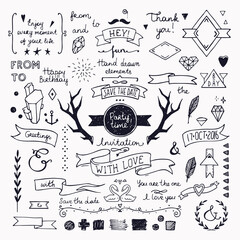 Enjoy
every moment
of your life
from
and
to
HEY!
fun
Thank
you!
FROM
TO
Happy
Birthday
Hand drawn
elements
SAVE THE DATE
the
Party
time
Greetings
Invitation
17·OCT·2016
WITH LOVE
to
xyz
You are the one
I love you
Save the date
&
&